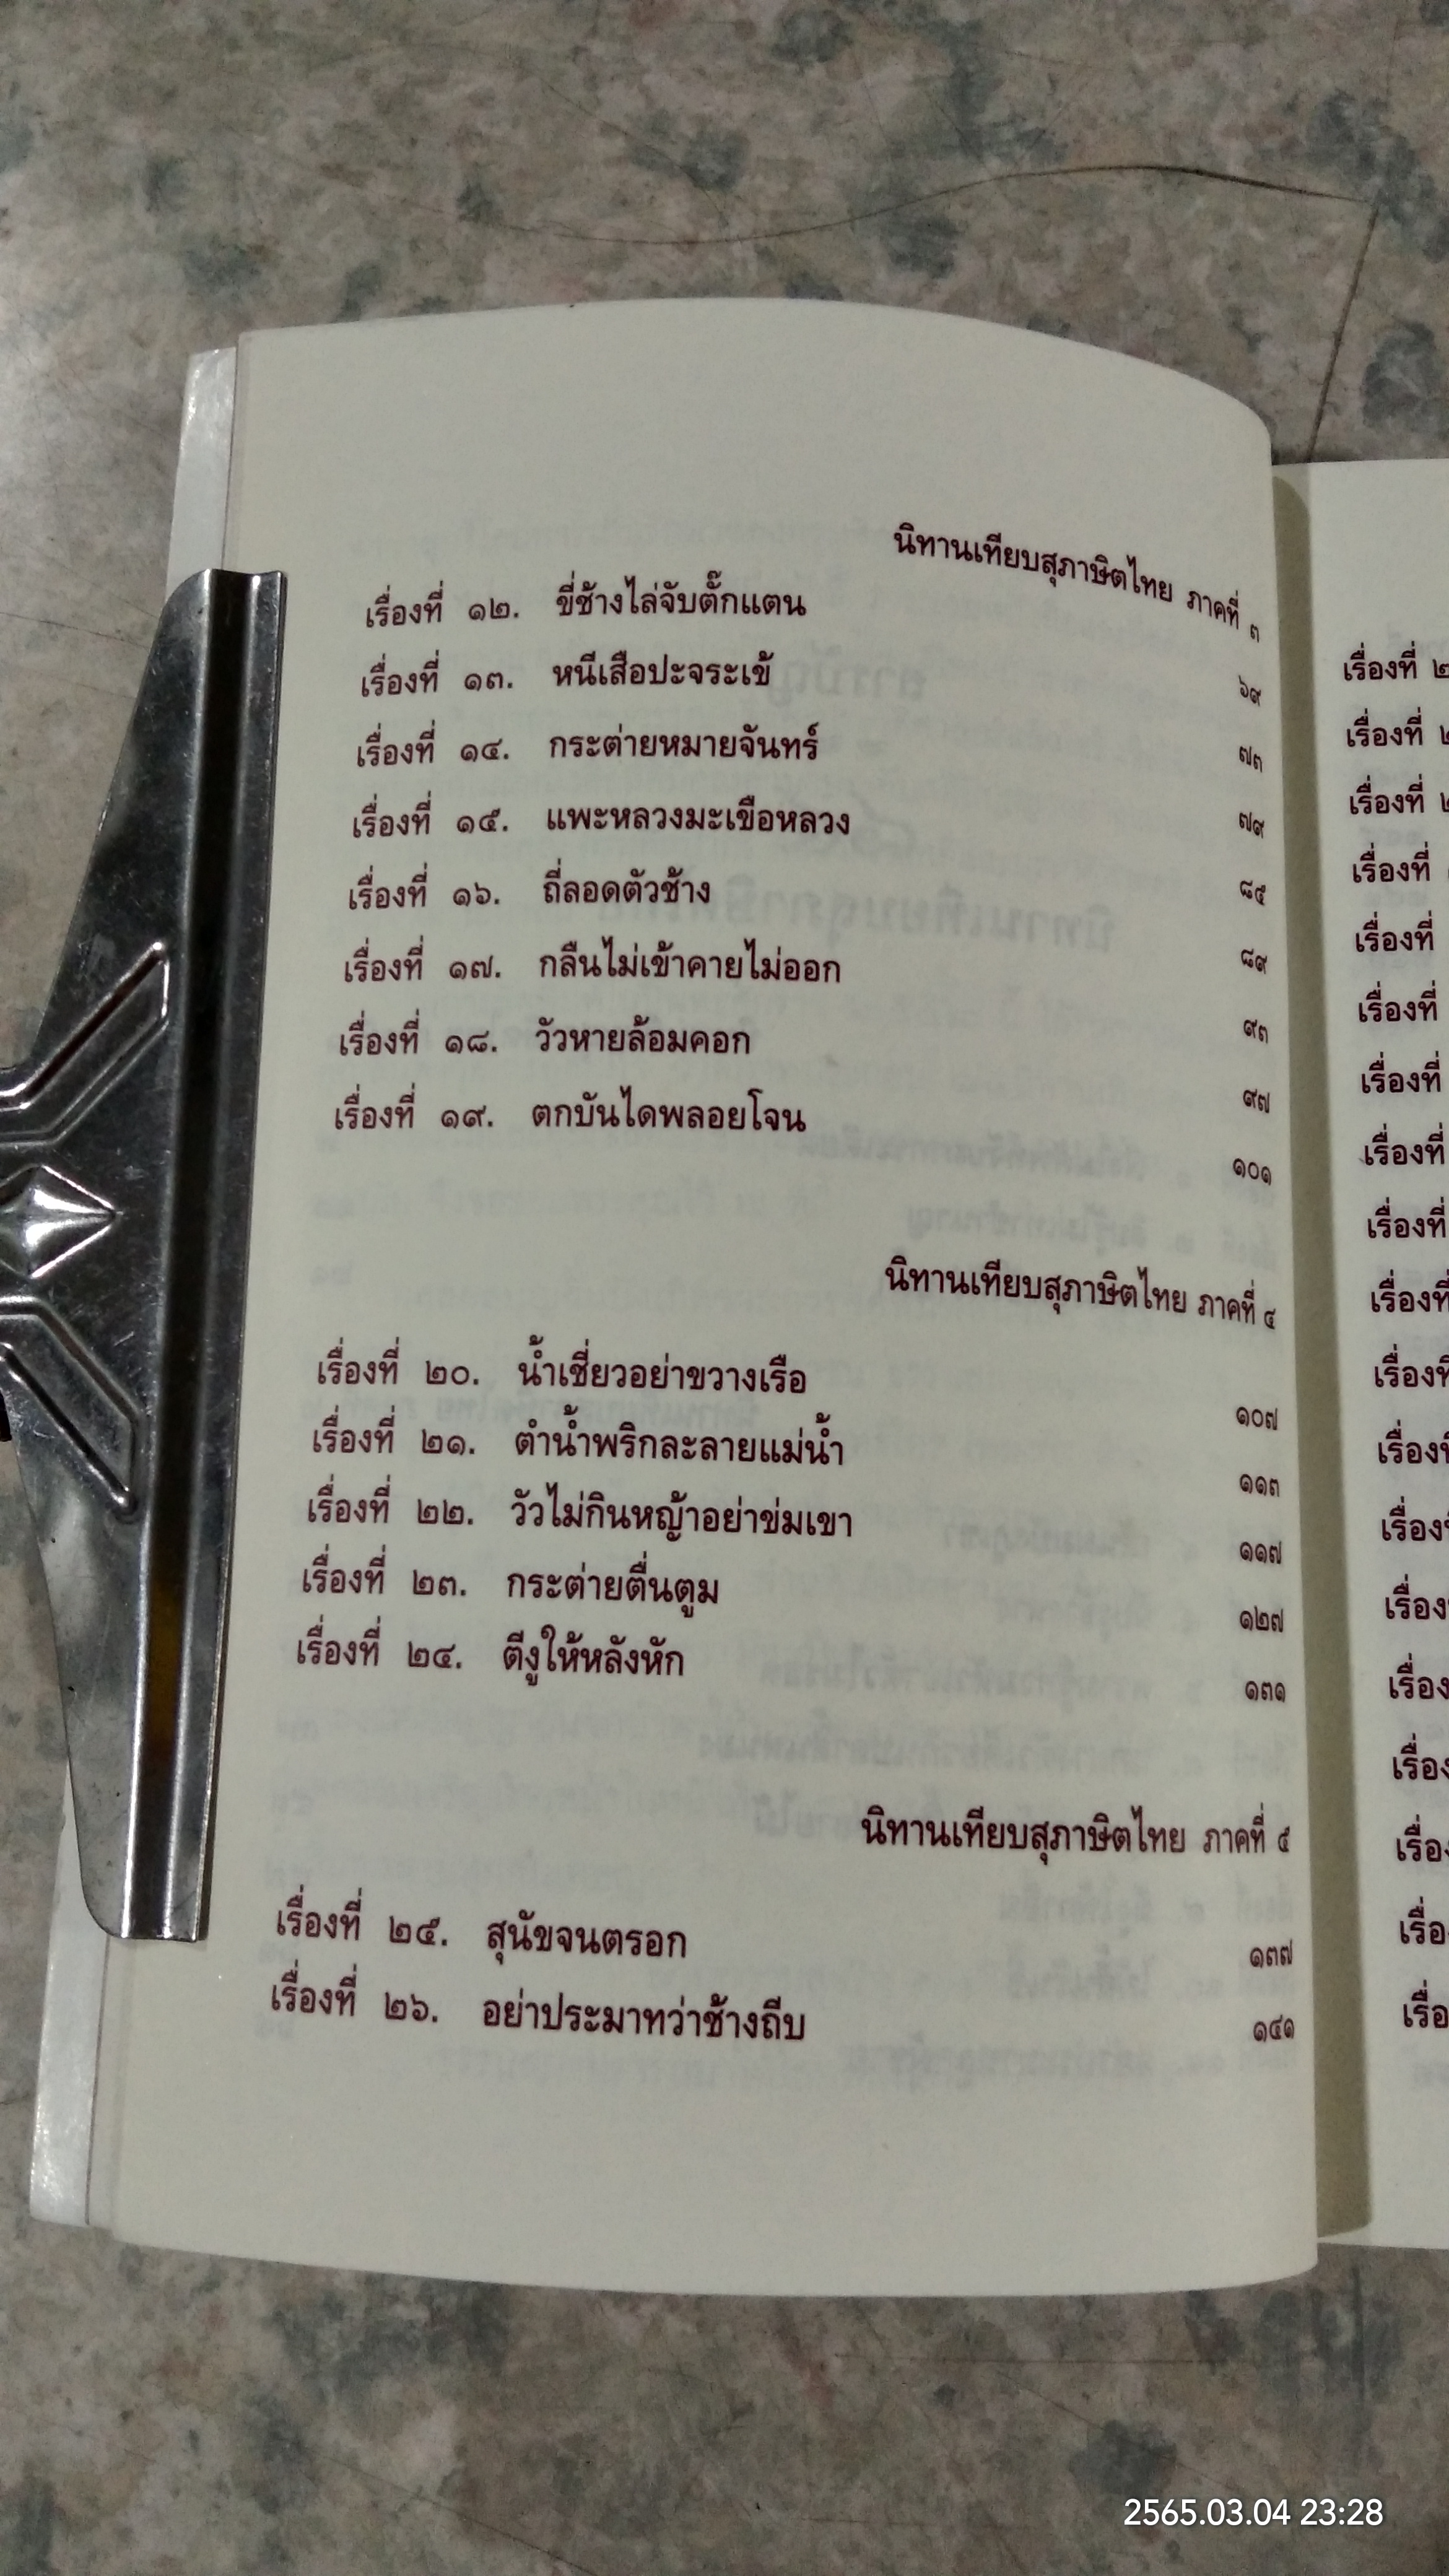 นิทานเทียบสุภาษิตไทย ภาคที่ ๓
เรื่องที่ ๑๒. ขี่ช้างไล่จับตั๊กแตน ๖๙
เรื่องที่ ๑๓. หนีเสือปะจระเข้ ๗๓
เรื่องที่ ๑๔. กระต่ายหมายจันทร์ ๗๙
เรื่องที่ ๑๕. แพะหลวงมะเขือหลวง ๘๕
เรื่องที่ ๑๖. ถี่ลอดตัวช้าง ๘๙
เรื่องที่ ๑๗. กลืนไม่เข้าคายไม่ออก ๙๓
เรื่องที่ ๑๘. วัวหายล้อมคอก ๙๗
เรื่องที่ ๑๙. ตกบันไดพลอยโจน ๑๐๑
นิทานเทียบสุภาษิตไทย ภาคที่ ๔
เรื่องที่ ๒๐. น้ำเชี่ยวอย่าขวางเรือ ๑๐๗
เรื่องที่ ๒๑. ตำน้ำพริกละลายแม่น้ำ ๑๑๓
เรื่องที่ ๒๒. วัวไม่กินหญ้าอย่าข่มเขา ๑๑๗
เรื่องที่ ๒๓. กระต่ายตื่นตูม ๑๒๗
เรื่องที่ ๒๔. ตีงูให้หลังหัก ๑๓๑
นิทานเทียบสุภาษิตไทย ภาคที่ ๕
เรื่องที่ ๒๕. สุนัขจนตรอก ๑๓๗
เรื่องที่ ๒๖. อย่าประมาทว่าช้างถีบ ๑๔๑
เรื่องที่
เรื่องที่
เรื่องที่
เรื่องที่
เรื่องที่
เรื่องที่
เรื่องที่
เรื่องที่
เรื่องที่
เรื่องที่
2565.03.04 23:28